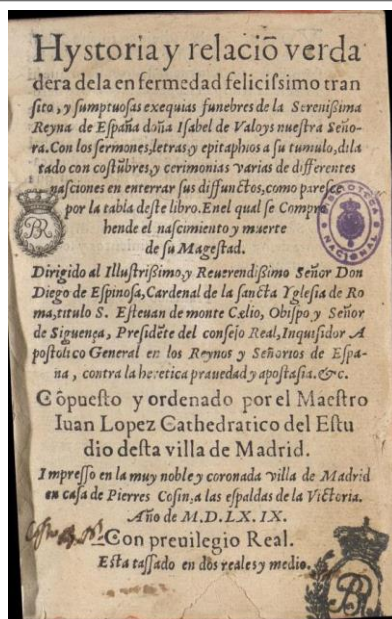 Hystoria y relaciõ verda
dera dela enfermedad felicissimo tran
sito, y sumptuosas exequias funebres de la Serenißima
Reyna de España doña Isabel de Valoys nuestra Seño-
ra. Con los sermones, letras, y epitaphios a su tumulo, dila
tado con costũbres, y cerimonias varias de differentes
nasciones en enterrar sus diffunctos, como paresce
por la tabla deste libro. Enel qual se Compre
hende el nascimiento y muerte
de su Magestad.
Dirigido al Illustrißimo, y Reuerendißimo Señor Don
Diego de Espinosa, Cardenal de la sancta Yglesia de Ro
ma, titulo S. Esteuan de monte Cælio, Obispo, y Señor
de Siguença, Presidẽte del consejo Real, Inquisidor A
postolico General en los Reynos y Señorios de Espa-
ña, contra la heretica prauedad y apostasia. &c.
Cõpuesto y ordenado por el Maestro
Iuan Lopez Cathedratico del Estu
dio desta villa de Madrid.
Impresso en la muy noble y coronada villa de Madrid
en casa de Pierres Cosin, a las espaldas de la Victoria.
Año de M.D.LX.IX.
Con preuilegio Real.
Esta tassado en dos reales y medio.
BIBLIOTECA NACIONAL
BR
BR